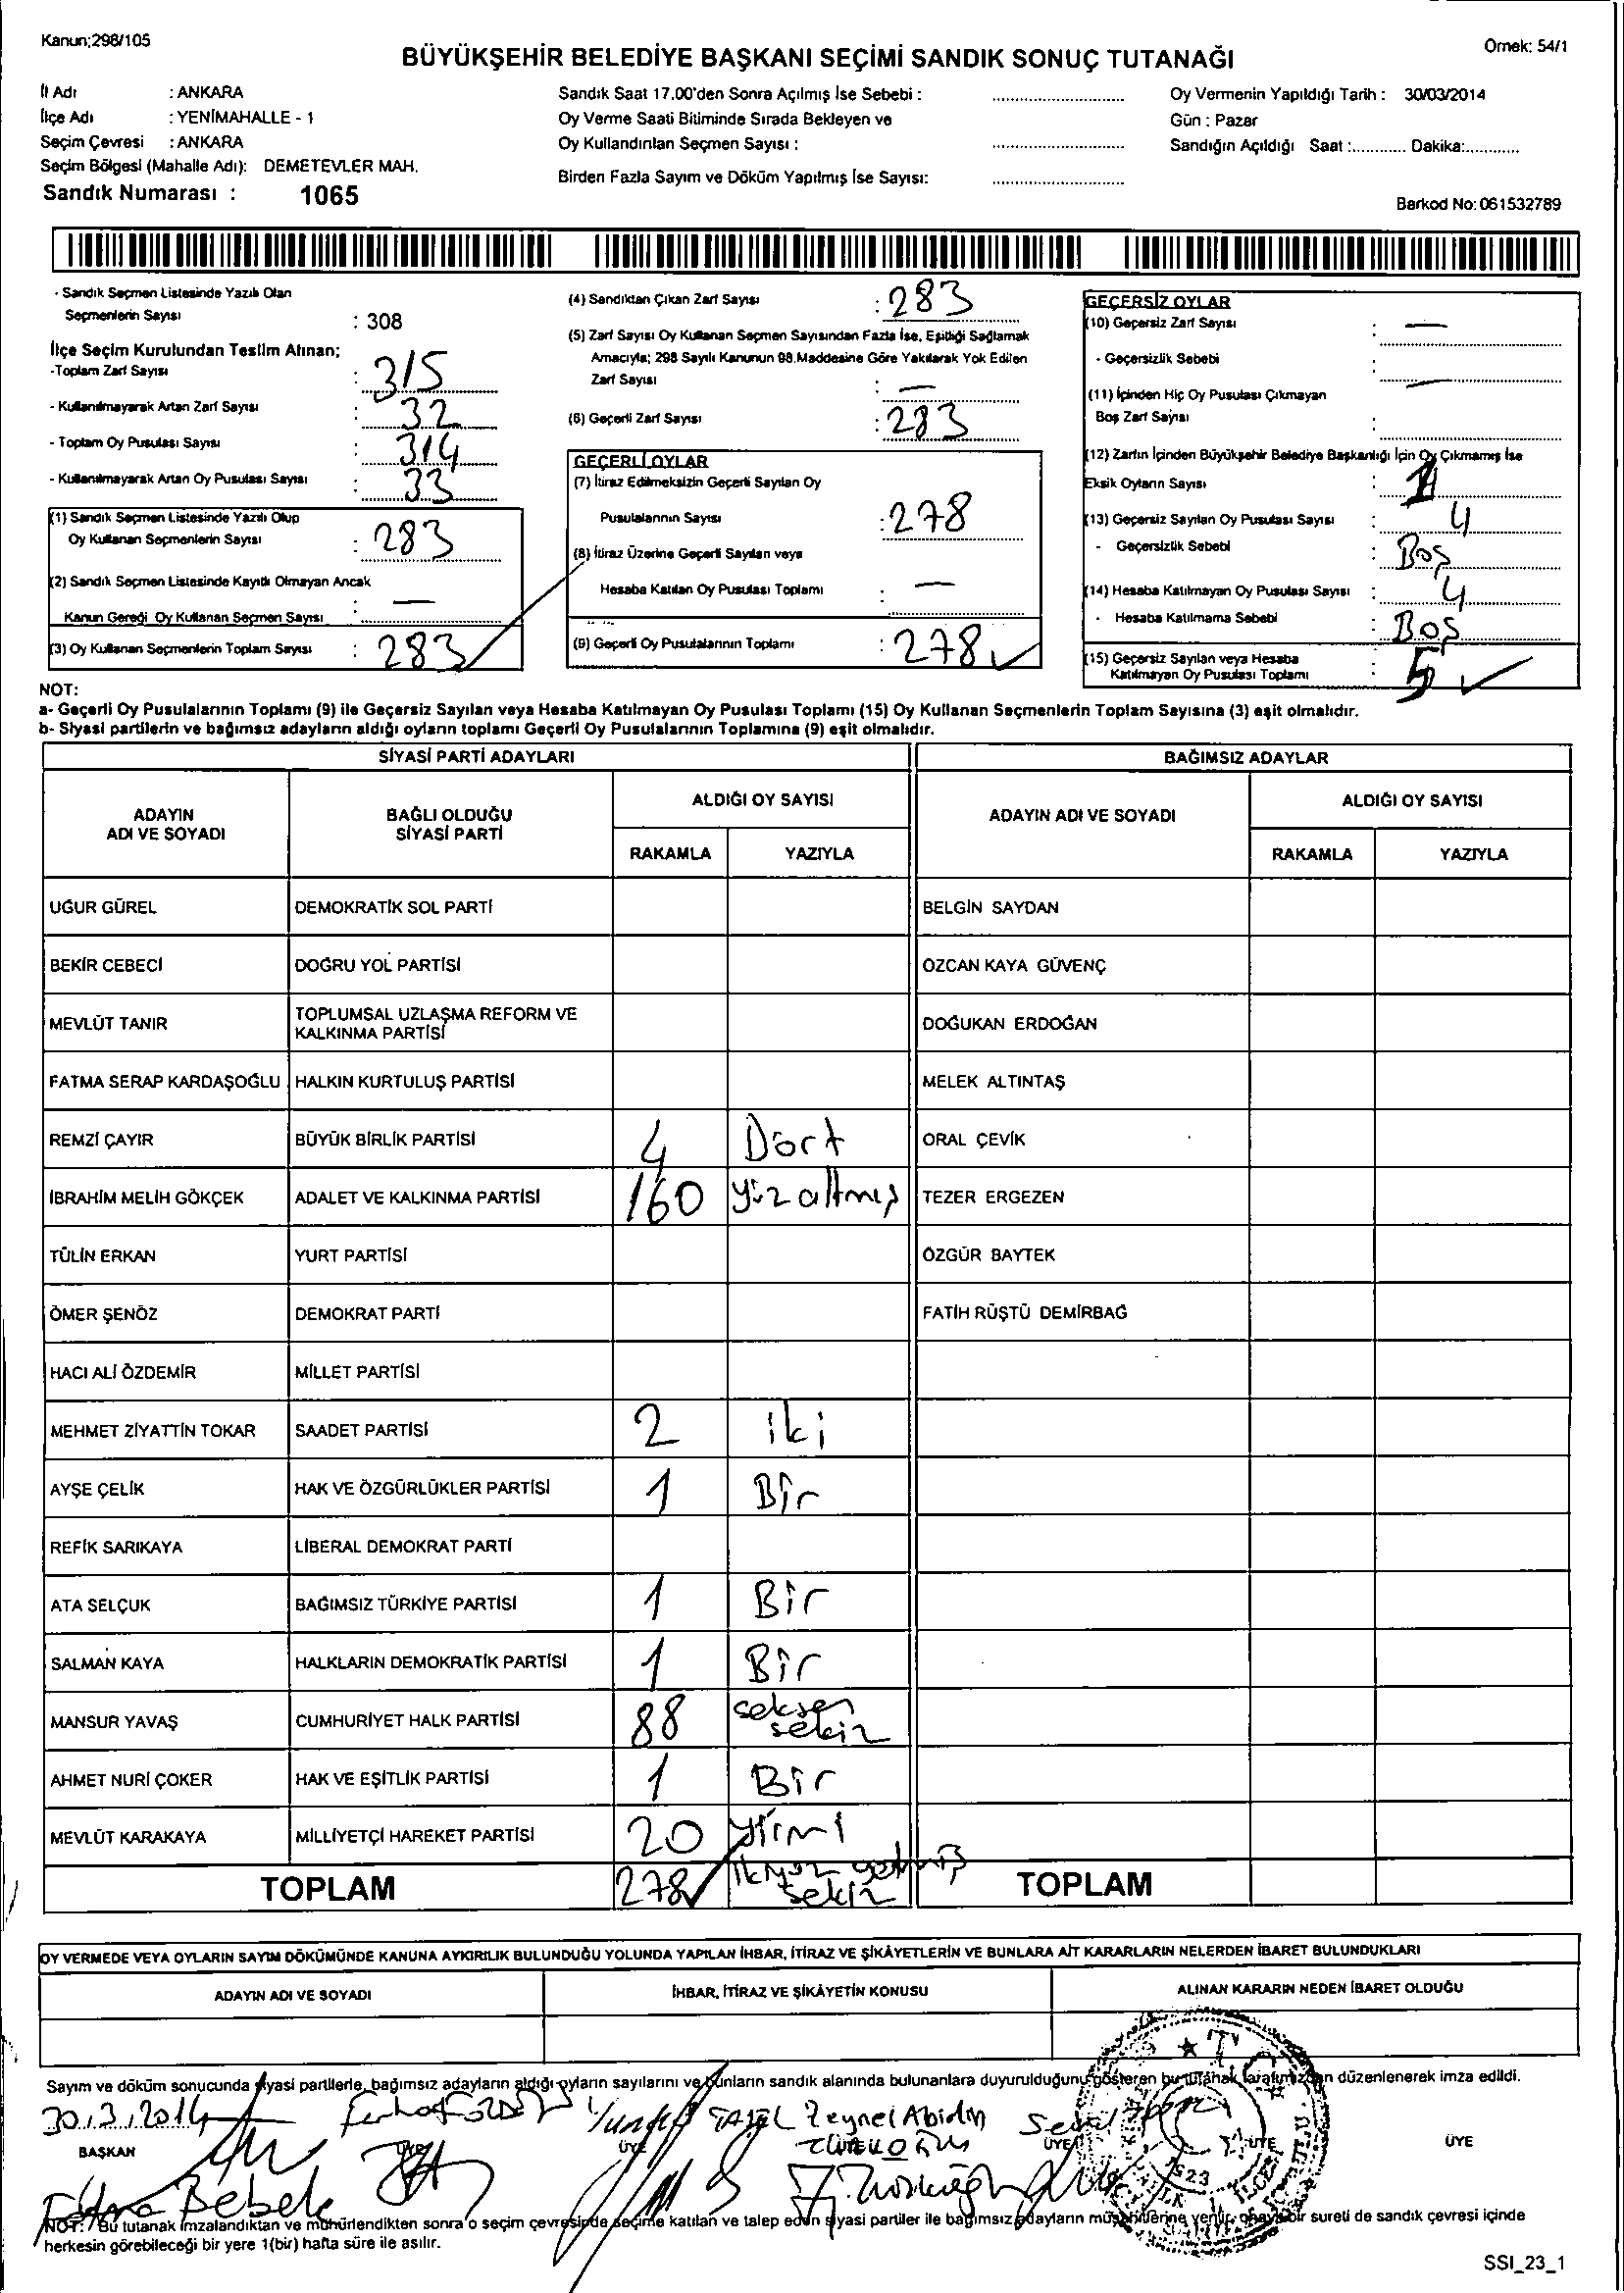 Kanun;298/105
Örnek: 54/1
BÜYÜKŞEHİR BELEDİYE BAŞKANI SEÇİMİ SANDIK SONUÇ TUTANAĞI
İl Adı : ANKARA
İlçe Adı : YENİMAHALLE - 1
Seçim Çevresi : ANKARA
Seçim Bölgesi (Mahalle Adı): DEMETEVLER MAH.
Sandık Numarası : 1065
Sandık Saat 17.00'den Sonra Açılmış İse Sebebi :
Oy Verme Saati Bitiminde Sırada Bekleyen ve
Oy Kullandırılan Seçmen Sayısı :
Birden Fazla Sayım ve Döküm Yapılmış İse Sayısı:
Oy Vermenin Yapıldığı Tarih : 30/03/2014
Gün : Pazar
Sandığın Açıldığı Saat :........... Dakika:...........
Barkod No: 061532789
- Sandık Seçmen Listesinde Yazılı Olan
Seçmenlerin Sayısı : 308
İlçe Seçim Kurulundan Teslim Alınan;
-Toplam Zarf Sayısı : 315
- Kullanılmayarak Artan Zarf Sayısı : 32
- Toplam Oy Pusulası Sayısı : 314
- Kullanılmayarak Artan Oy Pusulası Sayısı : 33
(1) Sandık Seçmen Listesinde Yazılı Olup
Oy Kullanan Seçmenlerin Sayısı : 283
(2) Sandık Seçmen Listesinde Kayıtlı Olmayan Ancak
Kanun Gereği Oy Kullanan Seçmen Sayısı : —
(3) Oy Kullanan Seçmenlerin Toplam Sayısı : 283
(4) Sandıktan Çıkan Zarf Sayısı : 283
(5) Zarf Sayısı Oy Kullanan Seçmen Sayısından Fazla İse, Eşitliği Sağlamak
Amacıyla; 298 Sayılı Kanunun 98.Maddesine Göre Yakılarak Yok Edilen
Zarf Sayısı : —
(6) Geçerli Zarf Sayısı : 283
GEÇERLİ OYLAR
(7) İtiraz Edilmeksizin Geçerli Sayılan Oy
Pusulalarının Sayısı : 278
(8) İtiraz Üzerine Geçerli Sayılan veya
Hesaba Katılan Oy Pusulası Toplamı : —
(9) Geçerli Oy Pusulalarının Toplamı : 278
GEÇERSİZ OYLAR
(10) Geçersiz Zarf Sayısı : —
- Geçersizlik Sebebi : —
(11) İçinden Hiç Oy Pusulası Çıkmayan
Boş Zarf Sayısı :
(12) Zarfın İçinden Büyükşehir Belediye Başkanlığı İçin Oy Çıkmamış İse
Eksik Oyların Sayısı : 1
(13) Geçersiz Sayılan Oy Pusulası Sayısı : 4
- Geçersizlik Sebebi : Boş
(14) Hesaba Katılmayan Oy Pusulası Sayısı : 4
- Hesaba Katılmama Sebebi : Boş
(15) Geçersiz Sayılan veya Hesaba
Katılmayan Oy Pusulası Toplamı : 5
NOT:
a- Geçerli Oy Pusulalarının Toplamı (9) ile Geçersiz Sayılan veya Hesaba Katılmayan Oy Pusulası Toplamı (15) Oy Kullanan Seçmenlerin Toplam Sayısına (3) eşit olmalıdır.
b- Siyasi partilerin ve bağımsız adayların aldığı oyların toplamı Geçerli Oy Pusulalarının Toplamına (9) eşit olmalıdır.
SİYASİ PARTİ ADAYLARI BAĞIMSIZ ADAYLAR
ADAYIN ADI VE SOYADI BAĞLI OLDUĞU SİYASİ PARTİ ALDIĞI OY SAYISI ADAYIN ADI VE SOYADI ALDIĞI OY SAYISI
RAKAMLA YAZIYLA RAKAMLA YAZIYLA
UĞUR GÜREL DEMOKRATİK SOL PARTİ BELGİN SAYDAN
BEKİR CEBECİ DOĞRU YOL PARTİSİ ÖZCAN KAYA GÜVENÇ
MEVLÜT TANIR TOPLUMSAL UZLAŞMA REFORM VE KALKINMA PARTİSİ DOĞUKAN ERDOĞAN
FATMA SERAP KARDAŞOĞLU HALKIN KURTULUŞ PARTİSİ MELEK ALTINTAŞ
REMZİ ÇAYIR BÜYÜK BİRLİK PARTİSİ 4 Dört ORAL ÇEVİK
İBRAHİM MELİH GÖKÇEK ADALET VE KALKINMA PARTİSİ 160 yüzaltmış TEZER ERGEZEN
TÜLİN ERKAN YURT PARTİSİ ÖZGÜR BAYTEK
ÖMER ŞENÖZ DEMOKRAT PARTİ FATİH RÜŞTÜ DEMİRBAĞ
HACI ALİ ÖZDEMİR MİLLET PARTİSİ
MEHMET ZİYATTİN TOKAR SAADET PARTİSİ 2 iki
AYŞE ÇELİK HAK VE ÖZGÜRLÜKLER PARTİSİ 1 Bir
REFİK SARIKAYA LİBERAL DEMOKRAT PARTİ
ATA SELÇUK BAĞIMSIZ TÜRKİYE PARTİSİ 1 Bir
SALMAN KAYA HALKLARIN DEMOKRATİK PARTİSİ 1 Bir
MANSUR YAVAŞ CUMHURİYET HALK PARTİSİ 88 seksen sekiz
AHMET NURİ ÇOKER HAK VE EŞİTLİK PARTİSİ 1 Bir
MEVLÜT KARAKAYA MİLLİYETÇİ HAREKET PARTİSİ 20 yirmi
TOPLAM 278 ikiyüz yetmiş sekiz TOPLAM
OY VERMEDE VEYA OYLARIN SAYIM DÖKÜMÜNDE KANUNA AYKIRILIK BULUNDUĞU YOLUNDA YAPILAN İHBAR, İTİRAZ VE ŞİKÂYETLERİN VE BUNLARA AİT KARARLARIN NELERDEN İBARET BULUNDUKLARI
ADAYIN ADI VE SOYADI İHBAR, İTİRAZ VE ŞİKÂYETİN KONUSU ALINAN KARARIN NEDEN İBARET OLDUĞU
Sayım ve döküm sonucunda siyasi partilerle, bağımsız adayların aldığı oyların sayılarını ve bunların sandık alanında bulunanlara duyurulduğunu gösteren bu tutanak tarafımızdan düzenlenerek imza edildi.
30.3.2014 Zeynel Abidin
BAŞKAN ÜYE ÜYE ÜYE ÜYE
NOT: Bu tutanak imzalandıktan ve mühürlendikten sonra o seçim çevresinde seçime katılan ve talep eden siyasi partiler ile bağımsız adayların müşahitlerine verilir, onaylı bir sureti de sandık çevresi içinde
herkesin görebileceği bir yere 1(bir) hafta süre ile asılır.
SSI_23_1